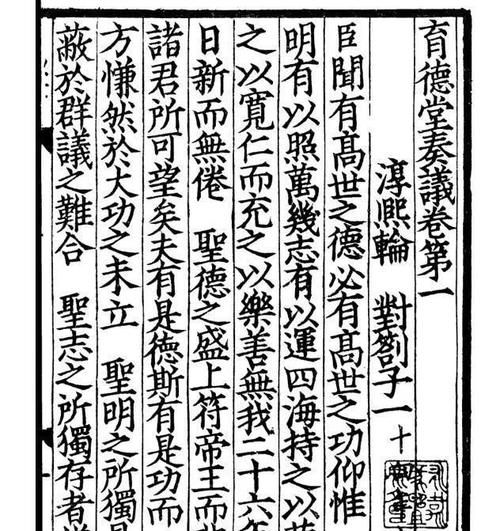 育德堂奏議卷第一
淳熙輪　對劄子一　十
臣聞有髙世之德必有髙世之功仰惟
明有以照萬幾志有以運四海持之以
之以寬仁而充之以樂善無我二十六年
日新而無倦　聖德之盛上符帝王而
諸君所可望矣夫有是德斯有是功
方慊然於大功之未立　聖明之所獨
蔽於群議之難合　聖志之所獨存者